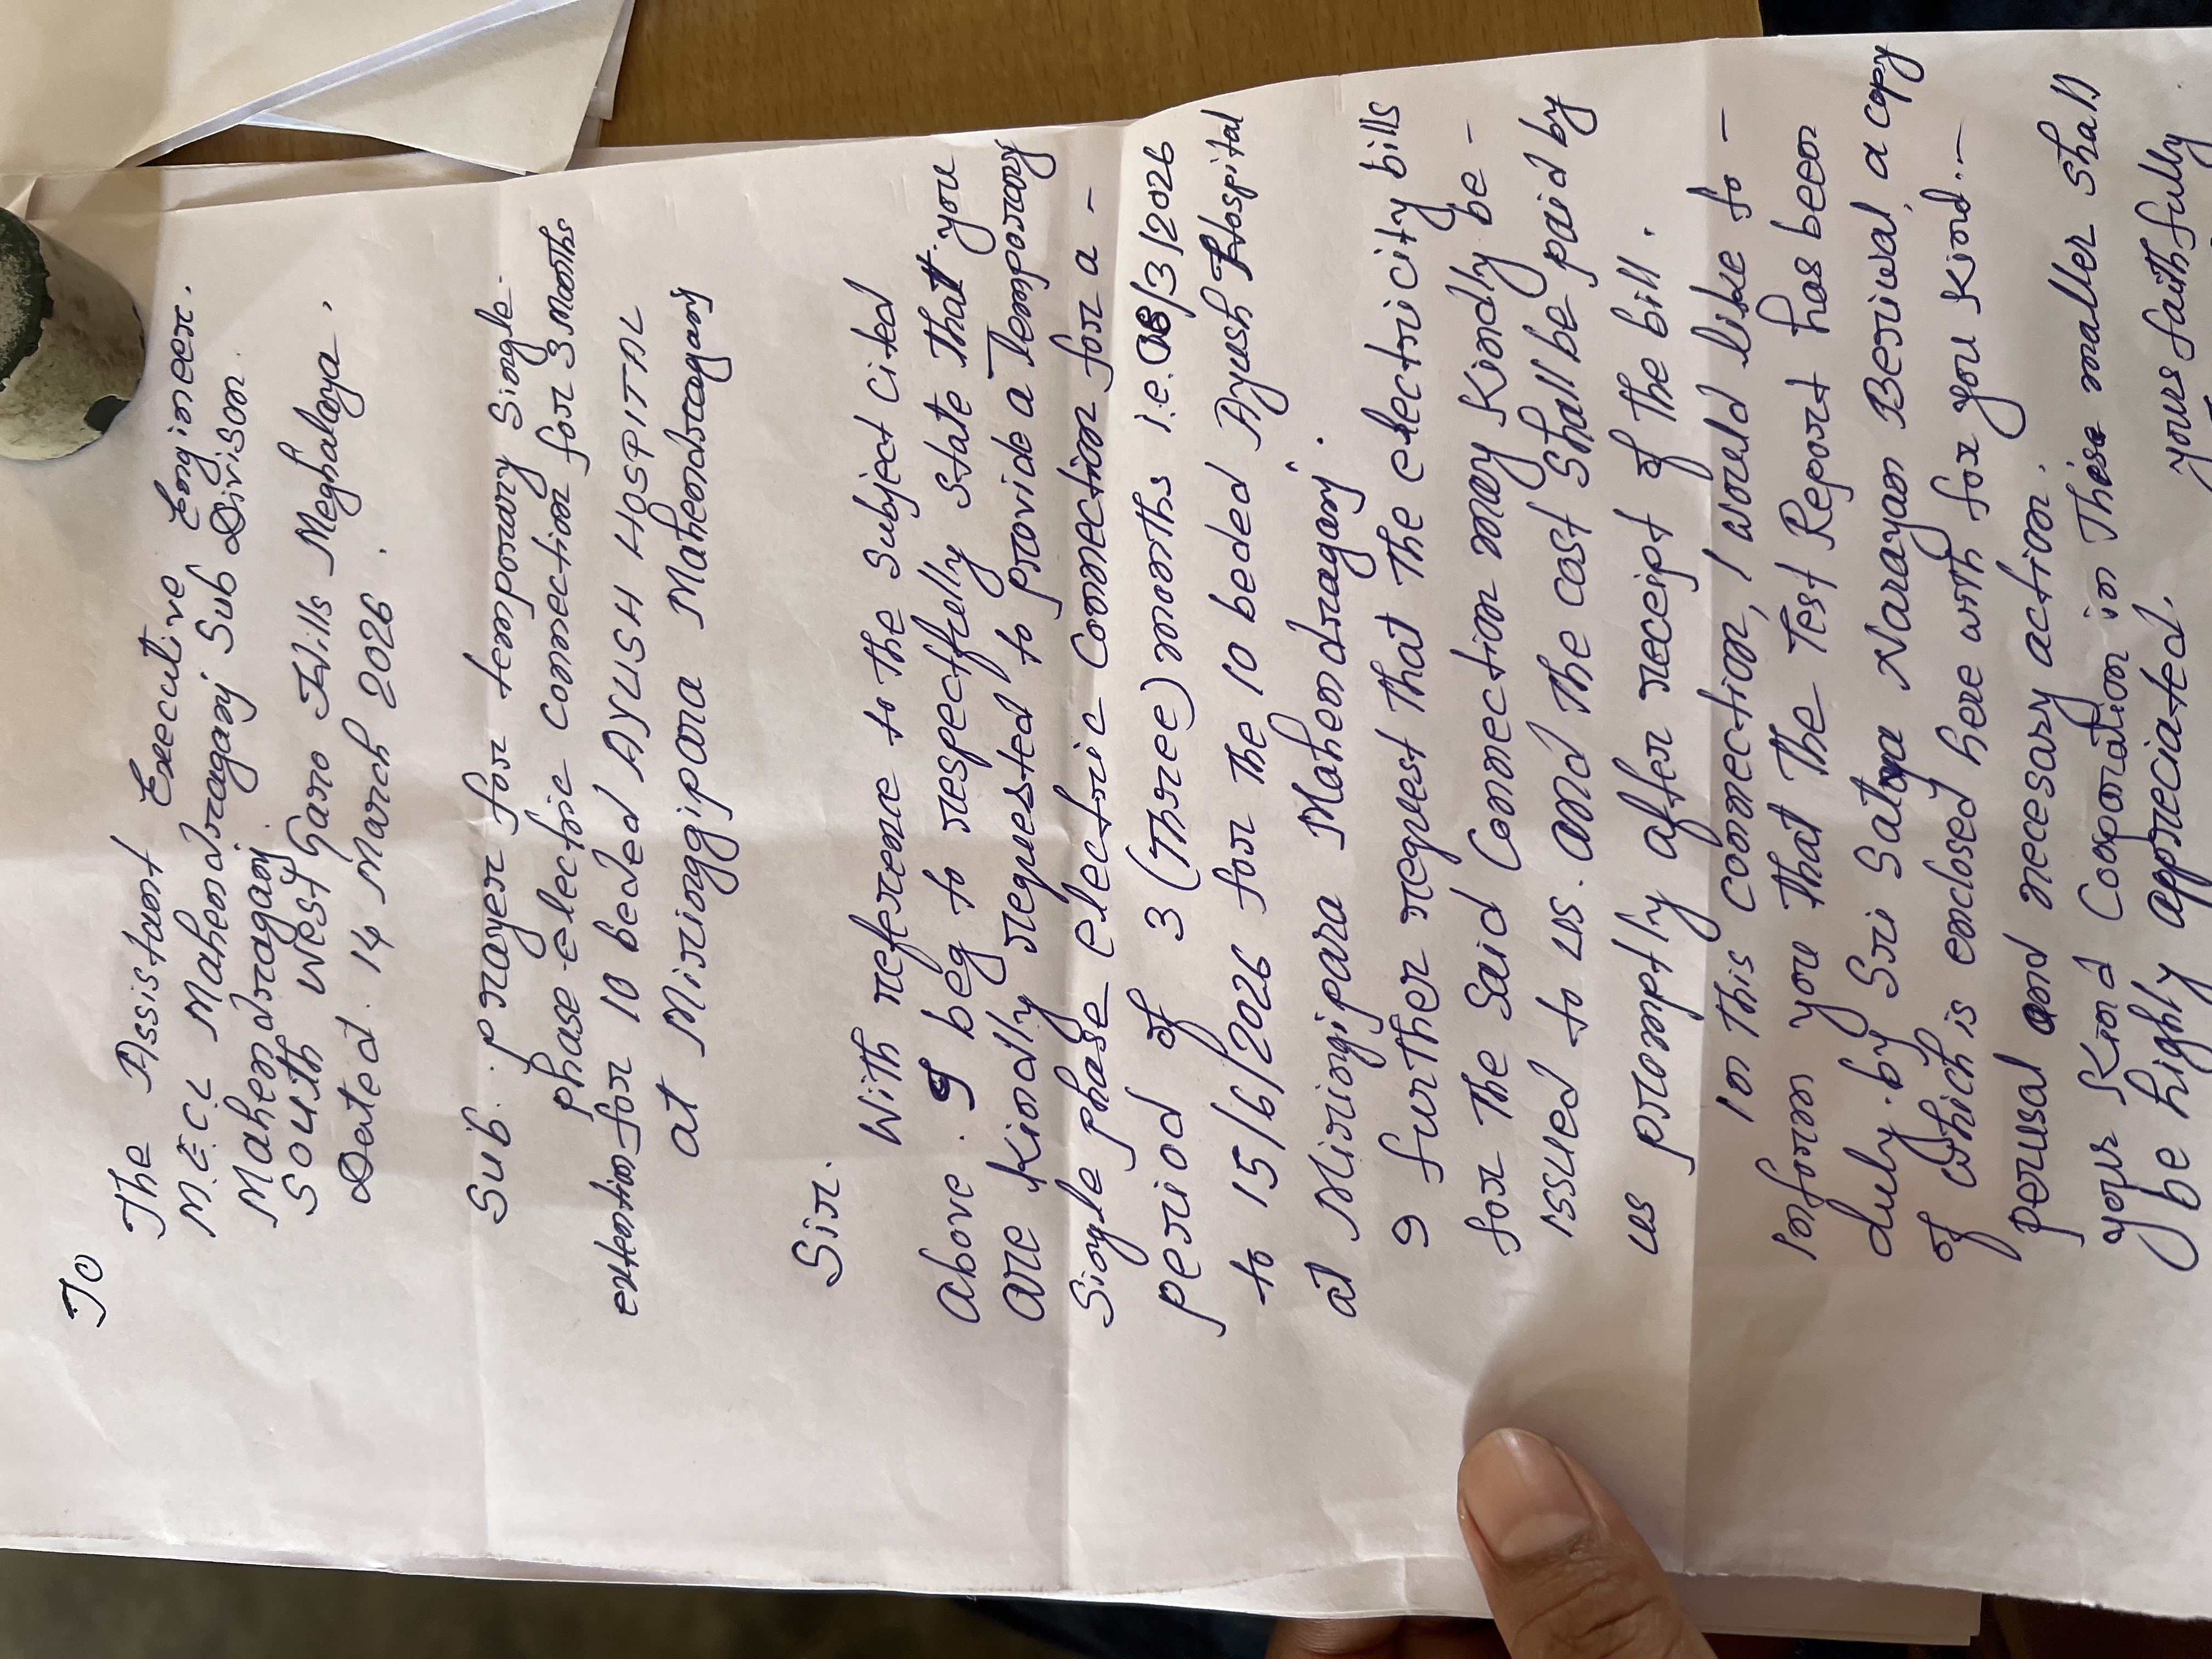 To
The Assistant Executive Engineer.
M.E.CL Mahendraganj Sub Divison
Mahendraganj.
South West Garo Hills Meghalaya,
Dated. 14 March 2026.
Sub. prayer for temporary Single-
phase electric connection for 3 months
extention for 10 beded AYUSH HOSPITAL
at Miringgipara Mahendraganj
Sir.
With reference to the subject cited
above. I beg to respectfully state that you
are kindly requested to provide a Temporary
Single phase electric connection for a -
period of 3 (Three) months i.e. /3/2026
to 15/6/2026 for the 10 beded Ayush Hospital
at Miringipara Mahendraganj.
I further request that the electricity bills
for the said Connection may kindly be -
issued to us. and the cost shall be paid by
us promptly after receipt of the bill.
In this connection, I would like to -
Inform you that The Test Report has been
duly by Sri Satya Narayan Beriwal, a copy
of which is enclosed here with for you kind...-
perusal and necessary action.
your kind Cooperation in These matter shall
be highly appreciated.
yours faithfully